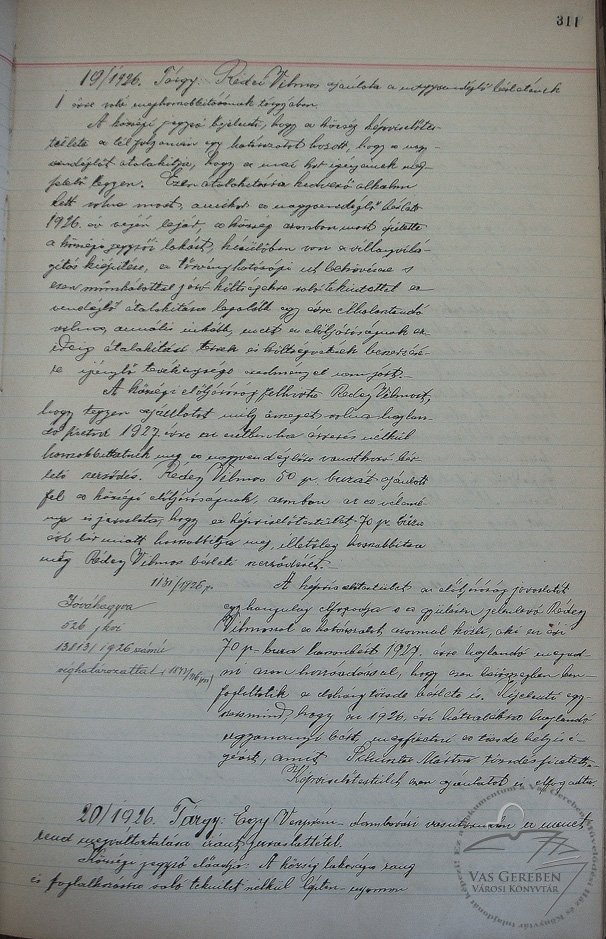 311
19/1926. Tárgy: Rédei Vilmos ajánlata a nagyvendéglő bérletének
1 évre való meghosszabbításának tárgyában.
A községi jegyző bejelenti, hogy a község képviselőtes-
tülete a tél folyamán egy határozatot hozott, hogy a nagy-
vendéglőt átalakítja, hogy a mai kor igényeinek meg-
felelő legyen. Ezen átalakításra kedvező alkalom
lett volna most, amikor a nagyvendéglő bérlete
1926. év végén lejár, a község azonban most építette
a községi jegyzői lakást, készülőben van a villanyvilá-
gítás kiépítése, a törvényhatósági út behozása s
ezen munkálattal járó költségekre való tekintettel a
vendéglő átalakítása legalább egy évre elhalasztandó
volna, annális inkább, mert az elöljáróságnak az
ideig átalakítási tervek és költségvetések beszerzésé-
re irányuló tevékenysége eredményt nem járt.
A községi elöljáróság felhívta Rédey Vilmost,
hogy tegyen ajánlatot mely összeget volna hajlan-
dó fizetni 1927 évre az esetben ha árverés nélkül
hosszabbíttatnék meg a nagyvendéglőre vonatkozó bér-
leti szerződés. Rédey Vilmos 50 q. buzát ajánlott
fel a községi elöljáróságnak, azonban az a vélemé-
nye és javaslata, hogy a képviselőtestület 70 q. búza
évi bér miatt hosszabbítja meg, illetőleg hosszabbítsa
meg Rédey Vilmos bérleti szerződését.
1131/1926 j.
Jóváhagyva
626 jkv
13113/1926 számú
véghatározattal
A képviselőtestület az elöljáróság javaslatát
egyhangulag elfogadja s a gyülésen jelenlevő Rédey
Vilmossal a határozatot azonnal közli, aki az évi
70 q. buza haszonbért 1927. évre hajlandó megad-
ni azon hozzáadással, hogy ezen bérösszegben ben-
foglaltatik a dohánytőzsde bérlete is. Kijelenti egy-
szersmind, hogy az 1926. évi hátralékra hajlandó
ugyanannyi bért, megfizetni a tőzsde helyisé-
géért, amit Schuszter Mártné tőzsdés fizetett.
Képviselőtestület ezen ajánlatot is elfogadta.
20/1926. Tárgy: Egy Veszprém-dombóvári vasútvonalon a menet
rend megváltoztatása iránt javaslattétel.
Községi jegyző előadja: A község lakossága rang
és foglalkozásra való tekintet nélkül lépten-nyomon
VAS GEREBEN
VÁROSI KÖNYVTÁR